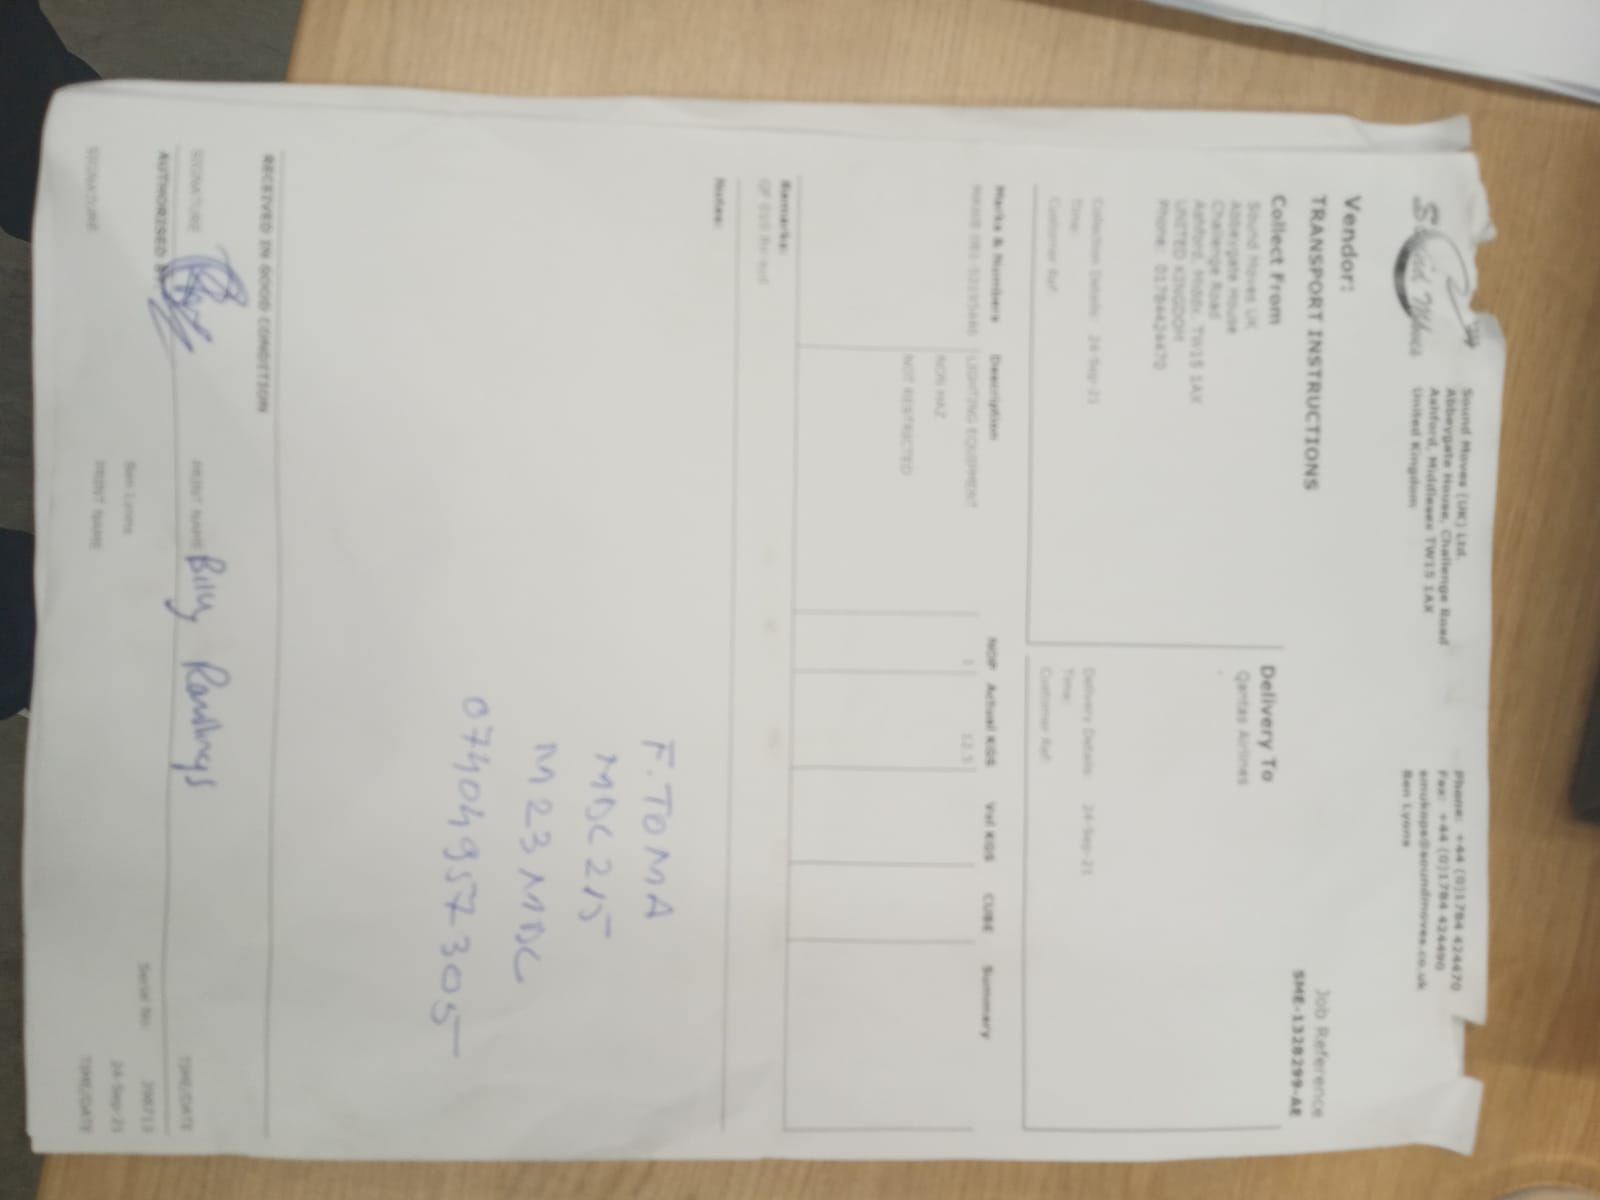 Sound Moves
Sound Moves (UK) Ltd.
Abbeygate House, Challenge Road
Ashford, Middlesex TW15 1AX
United Kingdom
Phone: +44 (0)1784 424470
Fax: +44 (0)1784 424490
smukops@soundmoves.co.uk
Ben Lyons
Vendor:
TRANSPORT INSTRUCTIONS
Job Reference
SME-1328299-AE
Collect From
Sound Moves UK
Abbeygate House
Challenge Road
Ashford, Middx. TW15 1AX
UNITED KINGDOM
Phone: 01784424470
Delivery To
Qantas Airlines
Collection Details: 24-Sep-21
Time:
Customer Ref:
Delivery Details: 24-Sep-21
Time:
Customer Ref:
Marks & Numbers Description NOP Actual KGS Vol KGS CUBE Summary
LIGHTING EQUIPMENT 1 12.5
NON HAZ
NOT RESTRICTED
Remarks:
Notes:
F. TOMA
MDC 215
M23 MDC
07404957305
RECEIVED IN GOOD CONDITION
SIGNATURE PRINT NAME Billy Rawlings TIME/DATE
AUTHORISED BY
Serial No:
Ben Lyons 24-Sep-21
SIGNATURE PRINT NAME TIME/DATE